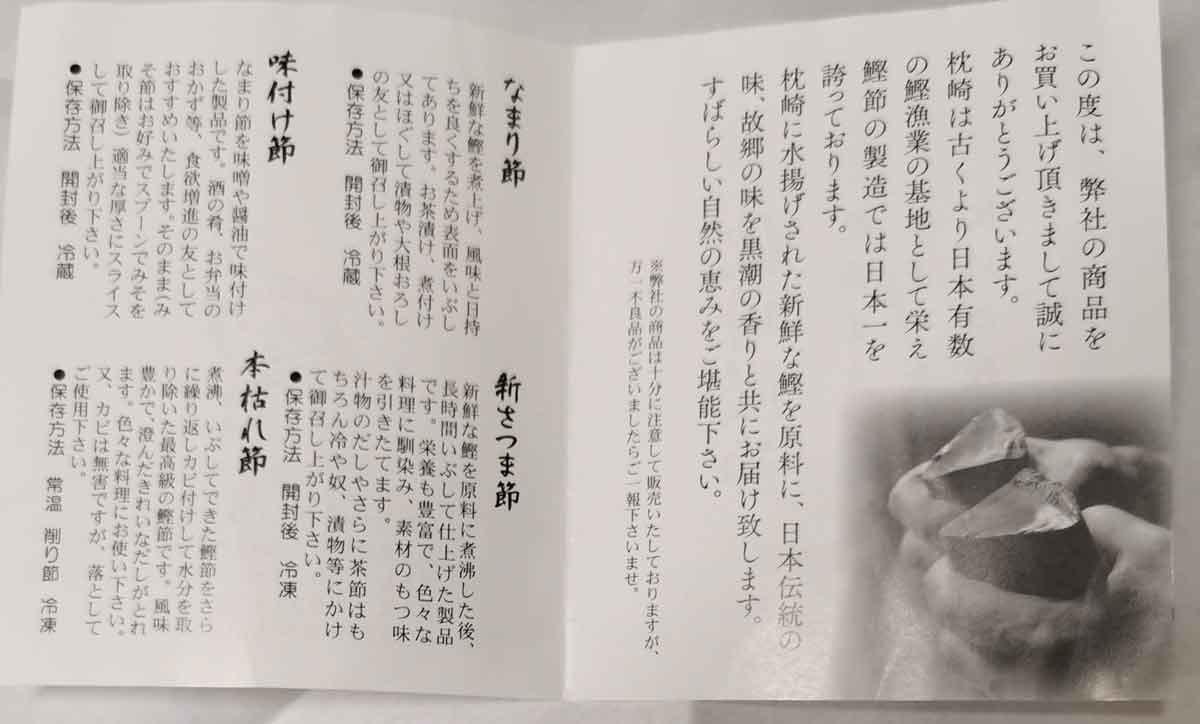 この度は、弊社の商品を
お買い上げ頂きまして誠に
ありがとうございます。
枕崎は古くより日本有数
の鰹漁業の基地として栄え
鰹節の製造では日本一を
誇っております。
枕崎に水揚げされた新鮮な鰹を原料に、日本伝統の
味、故郷の味を黒潮の香りと共にお届け致します。
すばらしい自然の恵みをご堪能下さい。
※弊社の商品は十分に注意して販売いたしておりますが、
万一不良品がございましたらご一報下さいませ。
なまり節
新鮮な鰹を煮上げ、風味と日持
ちを良くするため表面をいぶし
てあります。お茶漬け、煮付け
又はほぐして漬物や大根おろし
の友として御召し上がり下さい。
●保存方法 開封後 冷蔵
味付け節
なまり節を味噌や醤油で味付け
した製品です。酒の肴、お弁当の
おかず等、食欲増進の友として
おすすめいたします。そのまま(み
そ節はお好みでスプーンでみそを
取り除き)適当な厚さにスライス
して御召し上がり下さい。
●保存方法 開封後 冷蔵
新さつま節
新鮮な鰹を原料に煮沸した後、
長時間いぶして仕上げた製品
です。栄養も豊富で、色々な
料理に馴染み、素材のもつ味
を引きたてます。
汁物のだしやさらに茶節はも
ちろん冷や奴、漬物等にかけ
て御召し上がり下さい。
●保存方法 開封後 冷凍
本枯れ節
煮沸、いぶしてできた鰹節をさら
に繰り返しカビ付けして水分を取
り除いた最高級の鰹節です。風味
豊かで、澄んだきれいなだしがとれ
ます。色々な料理にお使い下さい。
又、カビは無害ですが、落として
ご使用下さい。
●保存方法 常温 削り節 冷凍